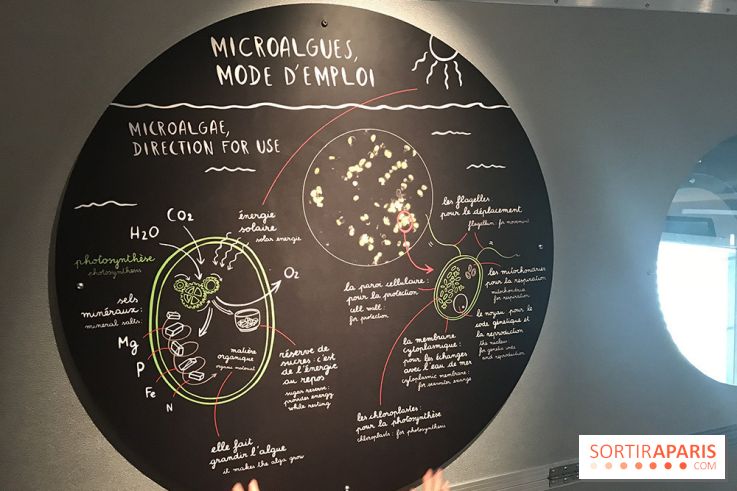 MICROALGUES,
MODE D'EMPLOI
MICROALGAE,
DIRECTION FOR USE
CO2
H2O
énergie
solaire
solar energie
photosynthèse
photosynthesis
O2
sels
minéraux:
mineral salts:
Mg
P
Fe
N
matière
organique
organic material
réserve de
sucres: c'est
de l'énergie
au repos
sugar reserve:
provides energy
while resting
elle fait
grandir l'algue
it makes the alga grow
les flagelles
pour le déplacement
flagellum: for movement
la paroi cellulaire:
pour la protection
cell wall:
for protection
les mitochondries
pour la respiration
mitochondria
for respiration
le noyau: pour le
code génétique et
la reproduction
the nucleus:
for genetic code
and reproduction
la membrane
cytoplasmique:
pour les échanges
avec l'eau de mer
cytoplasmic membrane:
for seawater exange
les chloroplastes:
pour la photosynthèse
chloroplasts: for photosynthesis
SORTIRAPARIS
.COM